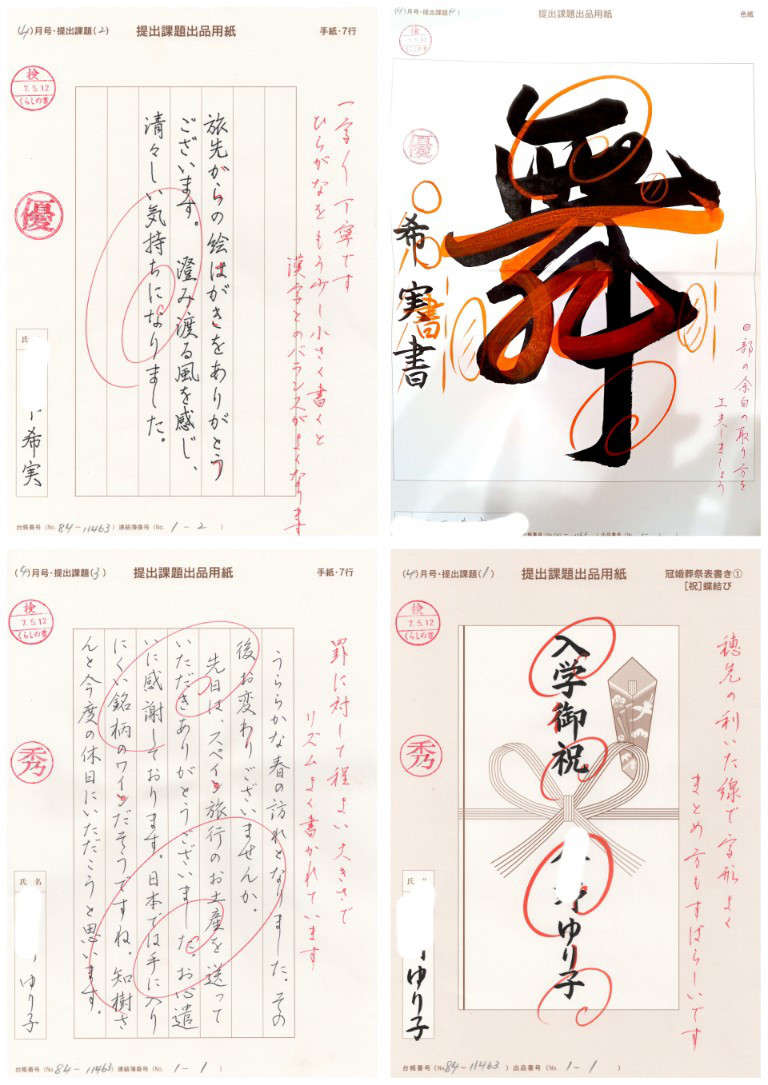 (4)月号・提出課題(2)
提出課題出品用紙
手紙・7行
検
7.5.12
くらしの書
優
一字一字丁寧です
ひらがなをもう少し小さく書くと
漢字とのバランスがよくなります
旅先からの絵はがきをありがとう
ございます。澄み渡る風を感じ、
清々しい気持ちになりました。
氏
希実
台帳番号(No.84-11463)連絡簿番号(No. 1-2 )
(4)月号・提出課題(4)
提出課題出品用紙
色紙
検
優
舞
希実書
書
部の余白の取り方を
工夫しましょう
(4)月号・提出課題(3)
提出課題出品用紙
手紙・7行
検
7.5.12
くらしの書
秀
罫に対して程よい大きさで
リズムよく書かれています
うららかな春の訪れとなりました。その
後、お変わりございませんか。
先日は、スペイン旅行のお土産を送って
いただきありがとうございました。お心遣
いに感謝しております。日本では手に入り
にくい銘柄のワインだそうですね。知樹さ
んと今度の休日にいただこうと思います。
氏名
ゆり子
台帳番号(No.84-11463)連絡簿番号(No. 1-1 )
(4)月号・提出課題(1)
提出課題出品用紙
冠婚葬祭表書き①
[祝]蝶結び
検
7.5.12
くらしの書
秀
穂先の利いた線で字形よく
まとめ方もすばらしいです
入学御祝
ゆり子
氏名
ゆり子
台帳番号(No.84-11463)出品番号(No. 1-1 )